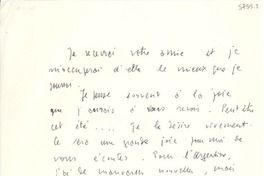 5755.2
Je recevrai votre amie et je
m'occuperai d'elle le mieux que je
pourrai.
Je pense souvent à la joie
que j'aurais à vous revoir. Peut être
cet été .... Je le désire vivement.
Ce sera une grande joie pour moi de
vous écouter. Pour l'Argentine,
j'ai de mauvaises nouvelles, mais